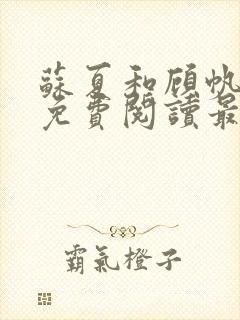 蘇夏和顧帆
免費閱讀最
霸氣橙子